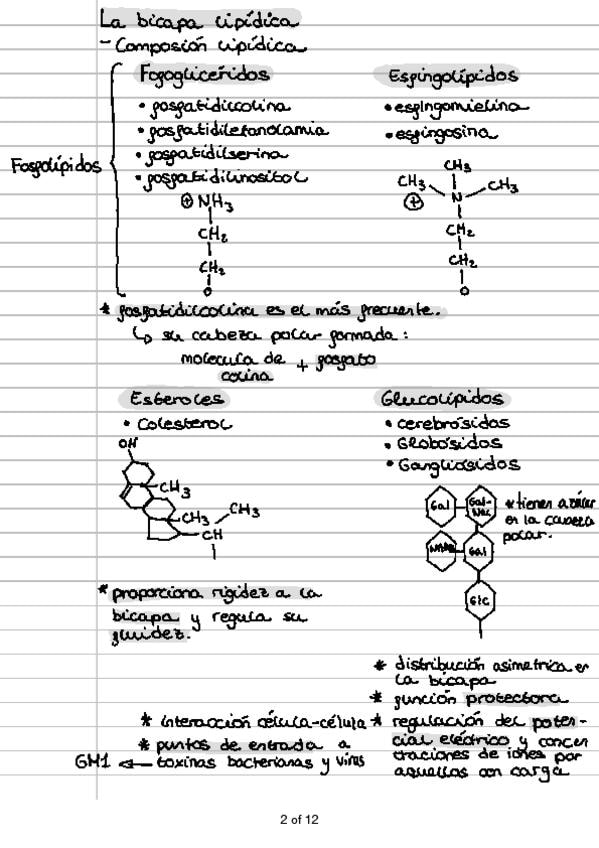 La bicapa lipídica
- Composión lipídica
Fosfolípidos
Fogoglicéridos
• fosfatidilcolina
• fosfatidiletanolamia
• fosfatidilserina
• fosfatidilinositol
⊕ NH3
CH2
CH2
O
Espingolípidos
• espingomielina
• espingosina
CH3
CH3 N CH3
⊕
CH2
CH2
O
* fosfatidilcolina es el más frecuente.
↳ su cabeza polar formada:
molecula de + fosfato
colina
Esteroles
• Colesterol
OH
CH3
CH3 CH3
CH
* proporciona rigidez a la
bicapa y regula su
fluidez.
Glucolípidos
• cerebrósidos
• Globósidos
• Gangliósidos
Gal Gal-Nac
NANA Gal
Glc
* tienen azúcar
en la cabeza
polar.
* distribución asimetrica en
la bicapa
* función protectora
* interacción célula-célula
* regulación del poten-
cial eléctrico y concen
traciones de iones por
aquellos con carga
* puntos de entrada a
GM1 ← toxinas bacterianas y virus
2 of 12